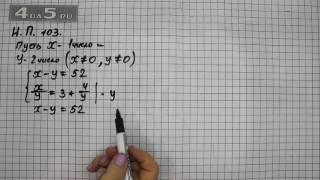 4DA5.RU
И.П. 103.
Пусть x - 1 число и
y - 2 число (x ≠ 0, y ≠ 0)
x - y = 52
x/y = 3 + 4/y | · y
x - y = 52